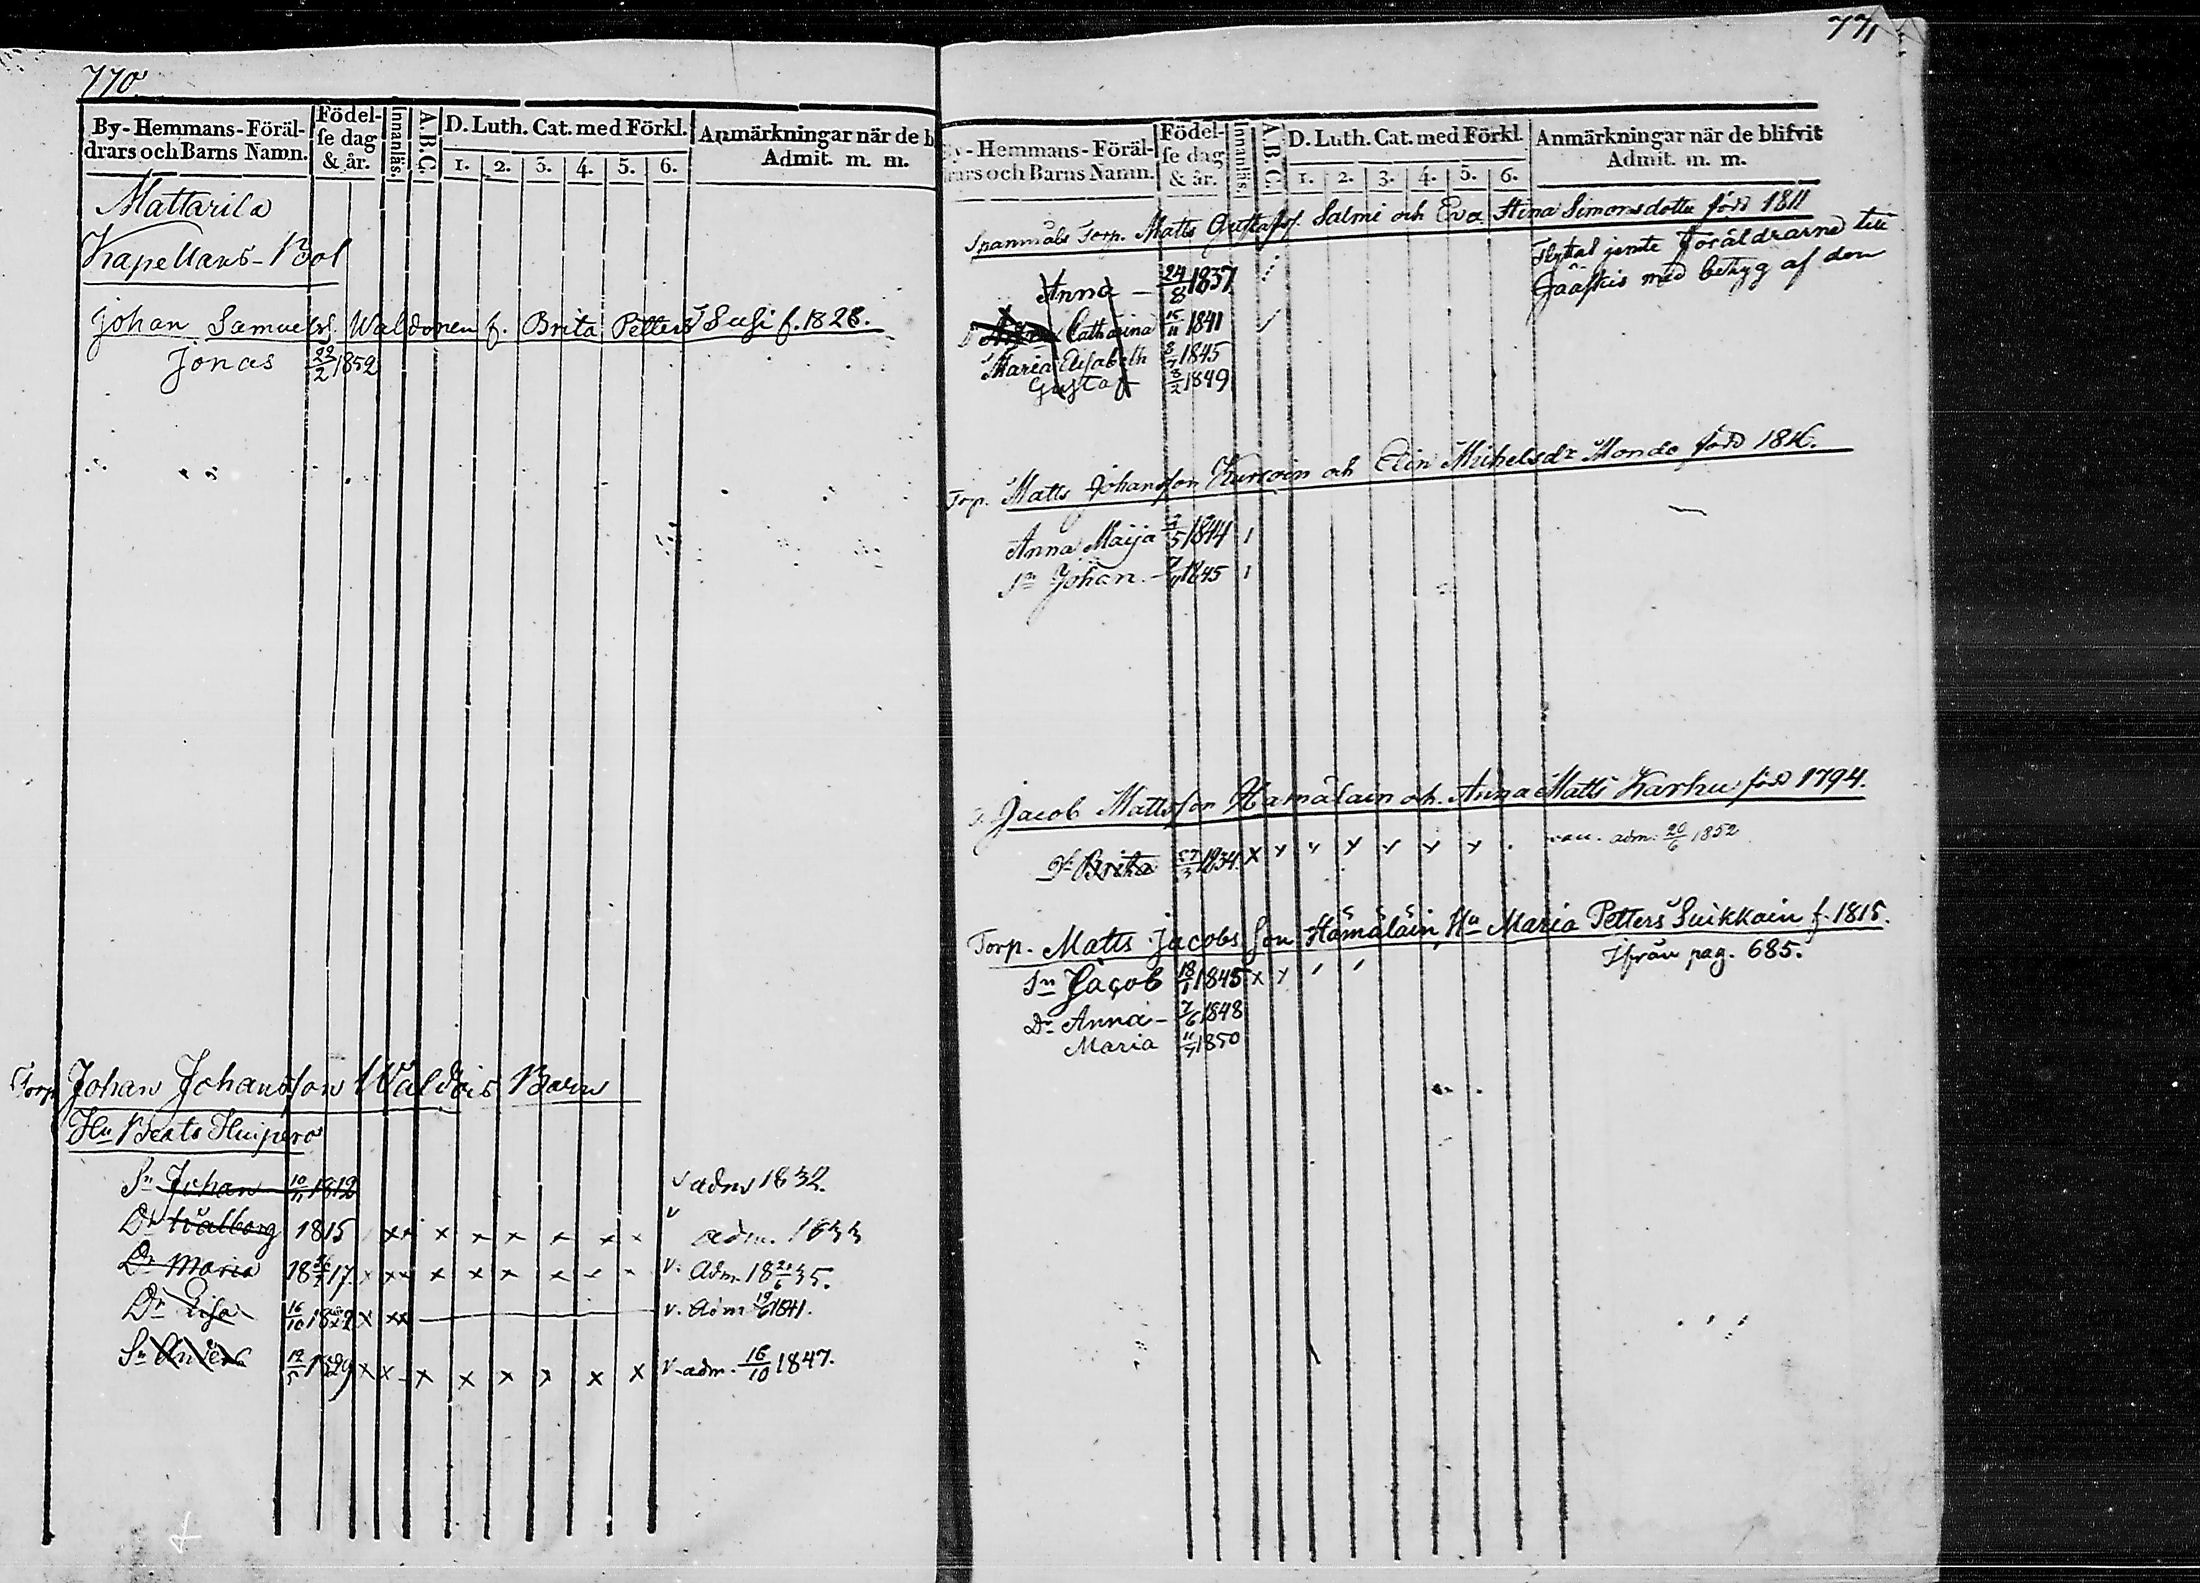 770
By-Hemmans-Föräl-
drars och Barns Namn.
Födel-
se dag
& år.
Innanläs.
A.B.C.
D. Luth. Cat. med Förkl.
1. 2. 3. 4. 5. 6.
Anmärkningar när de b
Admit. m. m.
Mattarila
Kapellans-Bol
Johan Samuels. Waldonen f. Brita Petters Susi f. 1828.
Jonas 22/2 1852
Torp. Johan Johansson Waldois Barn
Hu Beata Huipero
Sn Johan 10/11 1812 v adm 1832.
Dr Walborg 1815 x x x x x x x x v adm. 1833
Dr Maria 18 26/7 17. x x x x x x x x v. Adm. 18 21/6 35.
Dr Lisa 16/10 1822 x x x v. Adm 19/6 1841.
Sn Anders 12/5 1829 x x x x x x x x v. adm. 16/10 1847.
771
y-Hemmans-Föräl-
rars och Barns Namn.
Födel-
se dag
& år.
Innanläs.
A.B.C.
D. Luth. Cat. med Förkl.
1. 2. 3. 4. 5. 6.
Anmärkningar när de blifvit
Admit. m. m.
Spanmåls Torp. Matts Gustafss. Salmi och Eva Stina Simonsdotter född 1811
Flyttat jemte föräldrarna till
Jääskis med betyg af den
Anna - 24/8 1837
Catharina 15/11 1841
Maria Elisabeth 8/7 1845
Gustaf 8/2 1849
Torp. Matts Johansson Kurvoin och Elin Michelsdr Mondo född 1816.
Anna Maija 3/5 1844 1
Sn Johan - 7/4 1845 1
Jacob Mattsson Hämäläin och Anna Matts Karhu född 1794.
Dr Brita 27/3 1834. x x x x x x x adm. 20/6 1852
Torp. Matts Jacobsson Hämäläin, Hu Maria Petters Suikkain f. 1815.
Ifrån pag. 685.
Sn Jacob 18/1 1845 x x
Dr Anna - 7/6 1848
Maria 11/7 1850